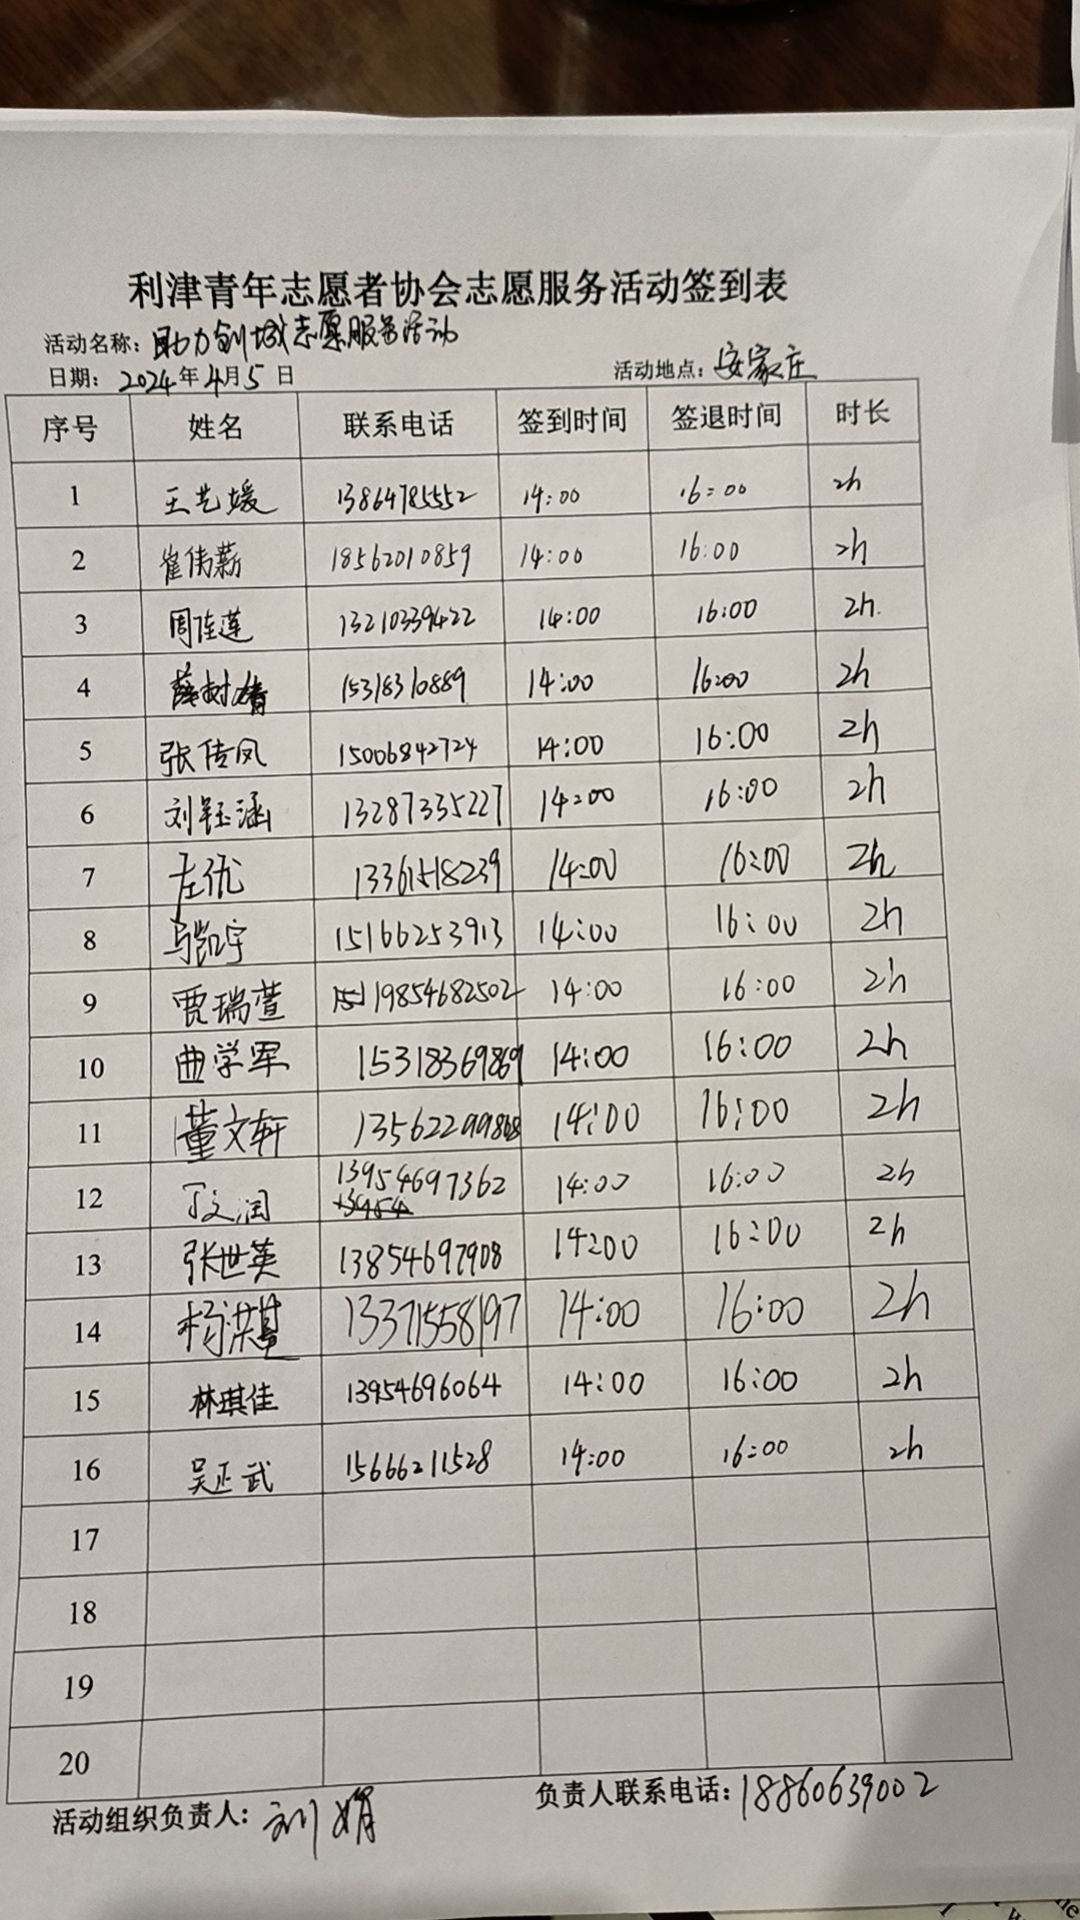 利津青年志愿者协会志愿服务活动签到表
活动名称：助力创城志愿服务活动
日期：2024年4月5日 活动地点：安家庄
序号 姓名 联系电话 签到时间 签退时间 时长
1 王艺媛 13864785552 14:00 16:00 2h
2 崔伟薪 18562010859 14:00 16:00 2h
3 周佳莲 13210339422 14:00 16:00 2h.
4 薛树婧 15318310889 14:00 16:00 2h
5 张传凤 15006842724 14:00 16:00 2h
6 刘钰涵 13287335227 14:00 16:00 2h
7 左优 13361518239 14:00 16:00 2h
8 马凯宇 15166253913 14:00 16:00 2h
9 贾瑞萱 19854682502 14:00 16:00 2h
10 曲学军 15318369869 14:00 16:00 2h
11 董文轩 13562299868 14:00 16:00 2h
12 丁文润 13954697362 14:00 16:00 2h
13 张世英 13854697908 14:00 16:00 2h
14 杨洪 13371558197 14:00 16:00 2h
15 林琪佳 13954696064 14:00 16:00 2h
16 吴正武 15666211528 14:00 16:00 2h
17
18
19
20
活动组织负责人：刘娟 负责人联系电话：18860639002